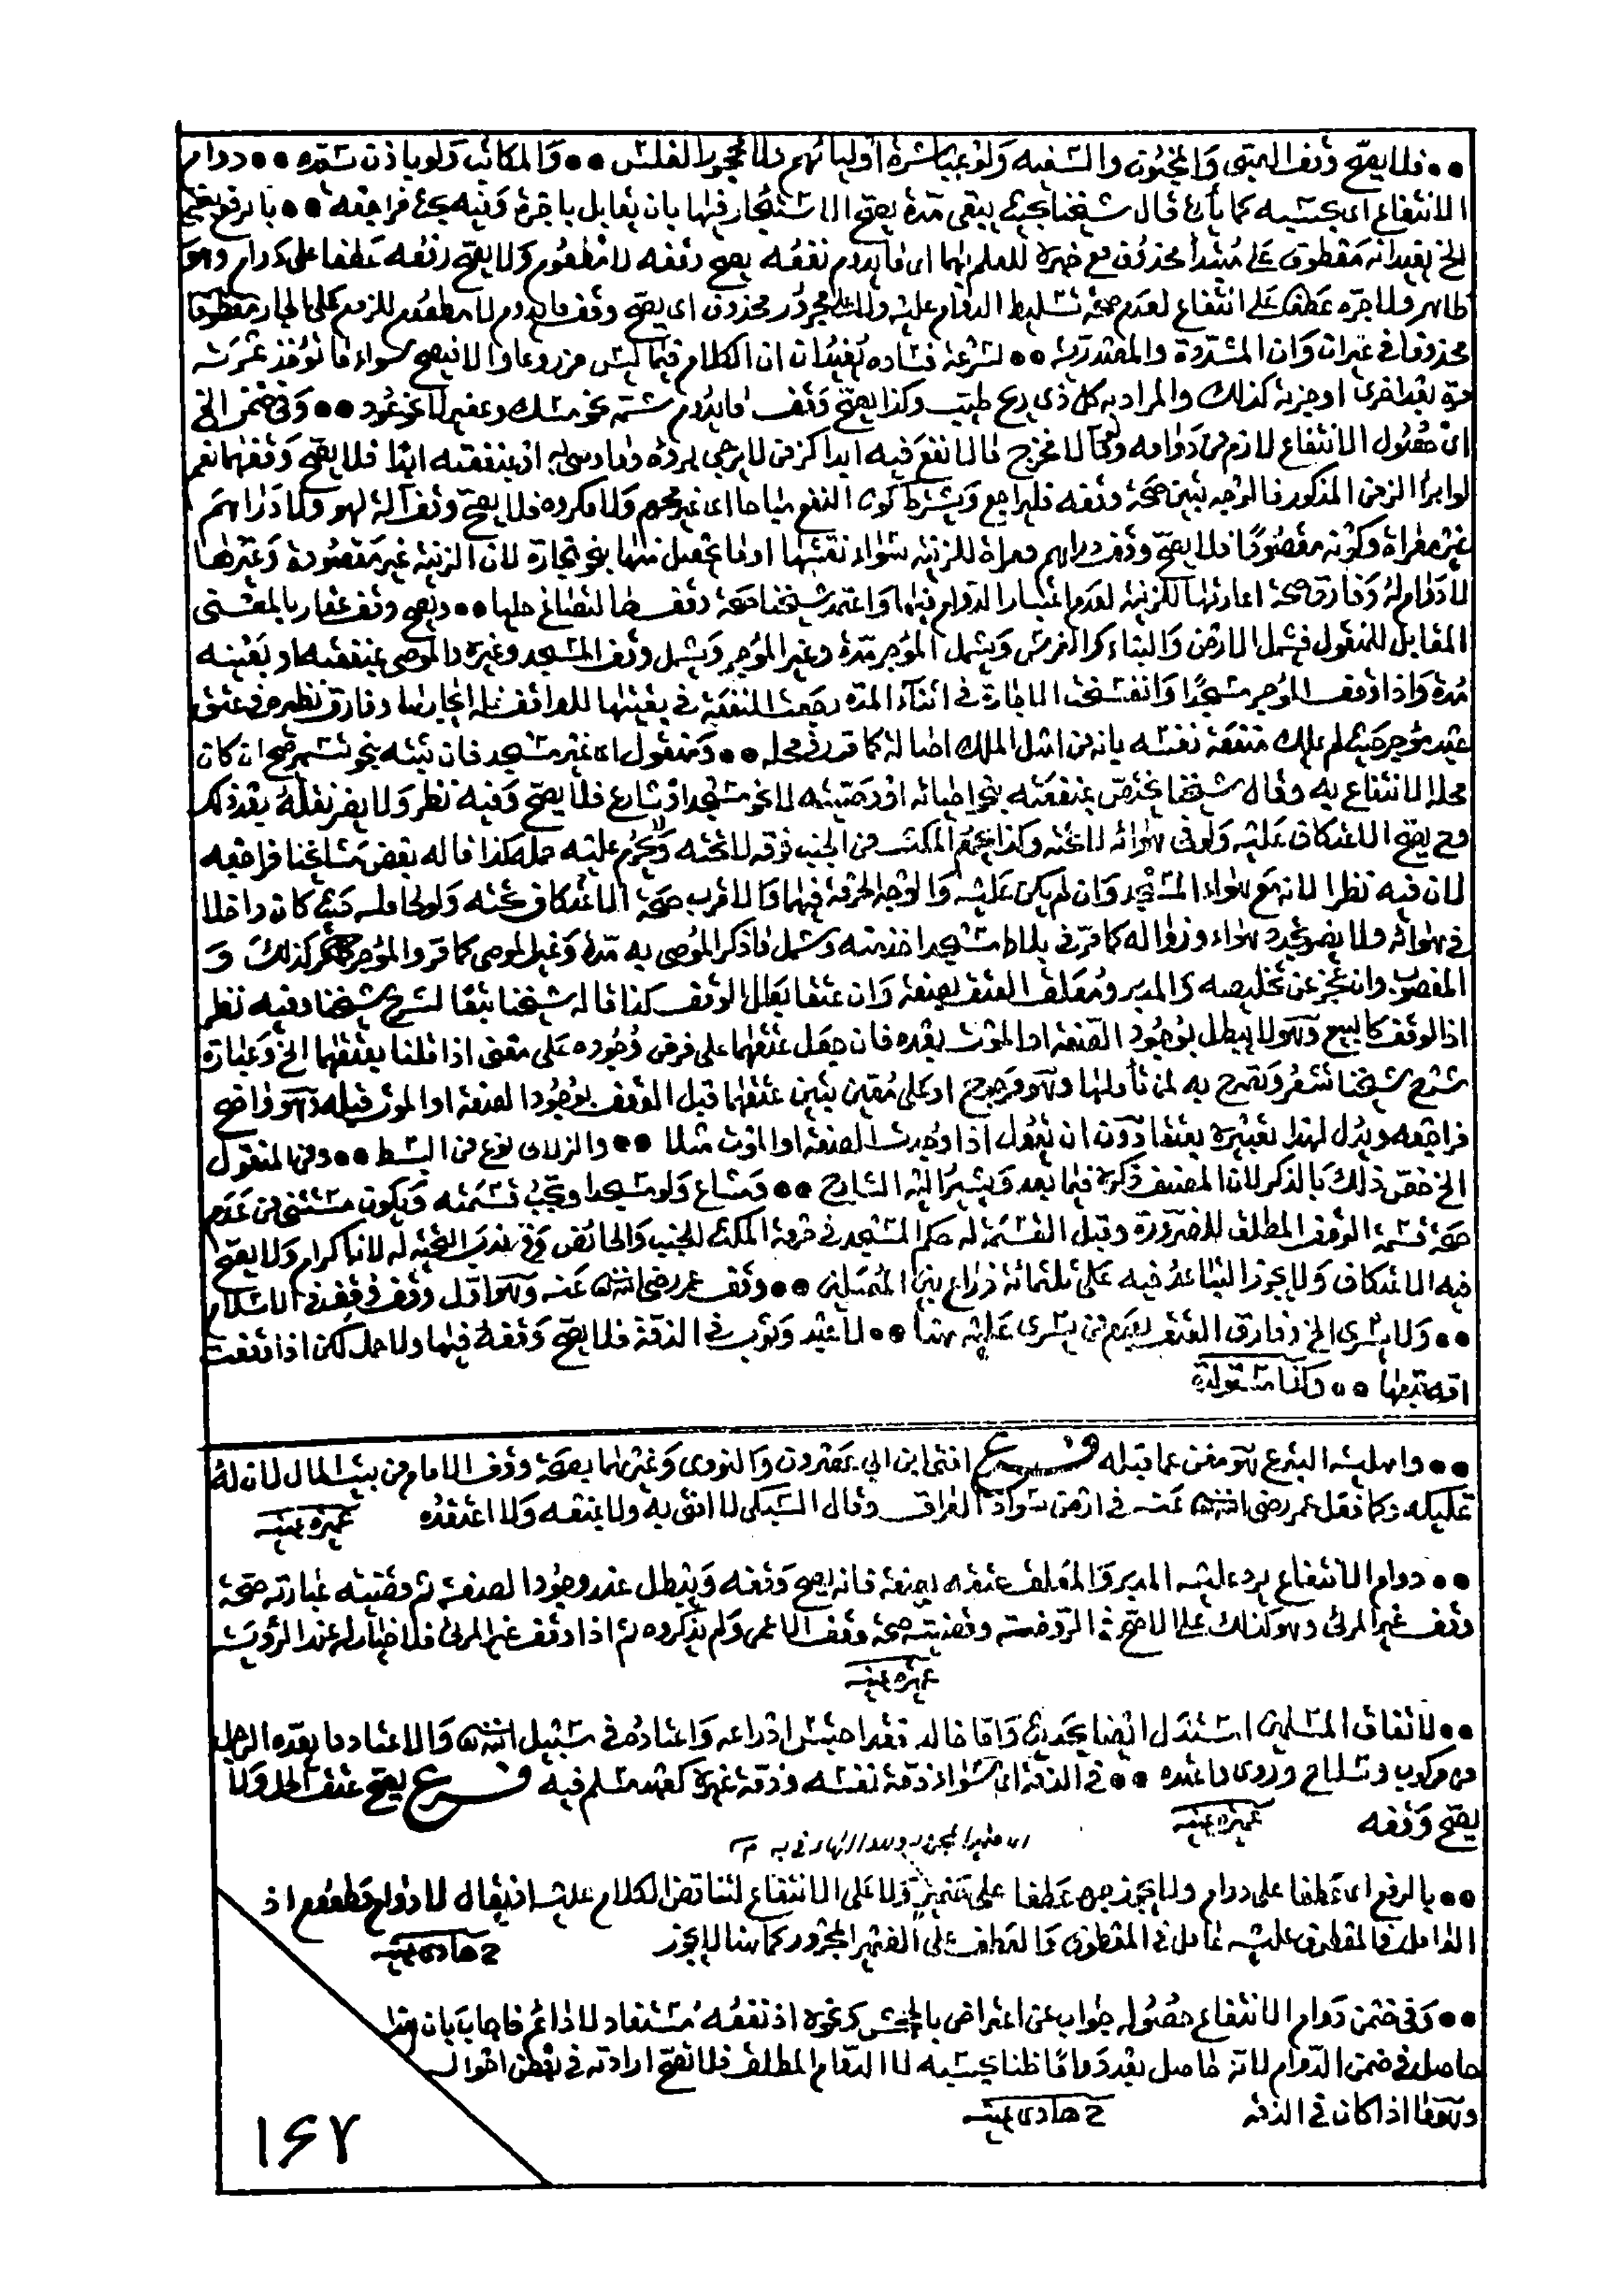 ●● فلا يصح وقف الصبى والمجنون والسفيه ولو بمباشرة أوليائهم ولا محجور الفلس ●● والمكاتب ولو باذن سيده ●● دوام
الانتفاع اى بحسبه كما يأتى قال شيخنا بحيث يبقى مدة يصح الاستئجار فيها بان يقابل باجرة وفيه بحث فراجعه ●● بالرفع
الخ يفيد انه معطوف على مبتدأ محذوف مع خبره للعلم بهما اى ما يدوم نفعه يصح وقفه لا مطعوم ولا يصح رفعه عطفا على دوام وهو
ظاهر ولا جره عطفا على انتفاع لعدم صحة تسليط الدوام عليه ولا على مجرور محذوف اى يصح وقف ما يدوم لا مطعوم للزوم على الجار معطوفا
محذوفا فى غير ان وان المشددة والمصدرية ●● لسرعة فساده يفيد ان الكلام فيما ليس مزروعا والا فيصح سواء ما تؤخذ ثمرته
مرة بعد اخرى او جزته كذلك والمراد به كل ذى ريح طيب وكذا يصح وقف ما يدوم شمه نحو مسك وعنبر لا نحو عود ●● وفى ضمن الخ
اى حصول الانتفاع لازم من دوامه ولا يخرج ما لا نفع فيه ابدا كزمن لا يرجى برؤه وما اوصى به او بمنفعته ابدا فلا يصح وقفهما نعم
لو ابرأ الزمن المذكور فالوجه تبين صحة وقفه فليراجع ويشترط كون النفع مباحا اى غير محرم ولا مكروه فلا يصح وقف آلة لهو ولا دراهم
غير معراة وكونه مقصودا فلا يصح وقف دراهم معراة للزينة سواء نقشها او ما يحصل منها بنحو تجارة لان الزينة غير مقصودة وغيرها
لا دوام له وفارق صحة اعارتها للزينة لعدم اعتبار الدوام فيها واعتمد شيخنا صحة وقفها لتصاغ حليا ●● ويصح وقف عقار بالمعنى
المقابل للمنقول فيشمل الارض والبناء كالغرس ويشمل المؤجر مدة وغير المؤجر ويشمل وقف المسجد وغيره والموصى بمنفعته او بعينه
مدة واذا وقف المؤجر مسجدا وانفسخت الاجارة فى اثناء المدة رجعت المنفعة فى بقيتها للواقف فله ايجارها وفارق نظيره فى عتق
عبد مؤجر حيث لم يملك منفعة نفسه بانه من اهل الملك اصالة كما قدر فى محله ●● ومنقول اى غير مسجد فان ثبته بنحو تسمير صح ان كان
محله الانتفاع به وقال شيخنا يختص بمنفعته بنحو اصابته او رحبته لا نحو مسجد او شارع فلا يصح وفيه نظر ولا يضر نقله بعد ذلك
وح يصح الاعتكاف عليه ولو فى هوائه لا تحته وكذا يحرم المكث من الجنب فوقه لا تحته ولا يحرم عليه حمله كذا قاله بعض مشايخنا فراجعه
لان فيه نظرا لانه مع هواء المسجد وان لم يكن عليه والوجه الحرمة فيهما والاقرب صحة الاعتكاف تحته ولو لحامله حيث كان داخلا
فى هوائه ولا يضر تجدد هواء وزواله كما مر فى بلاط مسجد اخذ منه وشمل ما ذكر الموصى به مدة وغير الموصى كما قدر والمؤجر كذلك و
المغصوب وان عجز عن تخليصه والمدبر ومعلق العتق بصفة وان عتقا بطل الوقف كذا قاله شيخنا تبعا لشرح شيخنا وفيه نظر
اذ الوقف كالبيع وهو لا يبطل بوجود الصفة او الموت بعده فان جعل عتقهما على فرض وجوده على معنى اذا قلنا بعتقهما الخ وعبارة
شرح شيخنا تشعر وتصرح به لمن تأملها وهو مرجوح او على معين يتبين عتقهما قبل الوقف بوجود الصفة او الموت قبله وهو واضح
فراجعه ويدل لهذا تعبيره بعتقا دون ان يقول اذا وجدت الصفة او الموت مثلا ●● والزلالى نوع من البسط ●● وفى المنقول
الخ خص ذلك بالذكر لان المصنف ذكره فيما بعد ويشير اليه الشارح ●● ومشاع ولو مسجدا وتجب قسمته ويكون مستثنى من عدم
صحة قسمة الوقف المطلق للضرورة وقبل القسمة له حكم المسجد فى حرمة المكث للجنب والحائض وفى ندب التحية له لانها كرام ولا يصح
فيه الاعتكاف ولا يجوز التباعد فيه على ثلثمائة ذراع بين المصلين ●● وقف عمر رضى الله عنه وهو اول وقف وقف فى الاسلام
●● ولا يسرى الخ وفارق العتق بعدم من يسرى عليه هنا ●● لا عبد وثوب فى الذمة فلا يصح وقفه فيها ولا حمل لكن اذا وقفت
امه تبعها ●● وكذا مستولدة
●● واصابته البئر ع هو مغن عما قبله فرع افتى ابن ابى عصرون والنووى وغيرهما بصحة وقف الامام من بيت المال لان له
تمليكه وكما فعل عمر رضى الله عنه فى ارض سواد العراق وقال السبكى لا افتى به ولا بمنعه ولا اعتقده عميره عينه
●● دوام الانتفاع يرد عليه المدبر والمعلق عتقه بصفة فانه يصح وقفه ويبطل عند وجود الصفة ثم قضية عبارته صحة
وقف غير المرئى وهو كذلك على الاصح فى الروضة وقضيته صحة وقف الاعمى ولم يذكروه ثم اذا وقف غير المرئى فلا خيار له عند الرؤية
عميره عينه
●● لاتفاق المسلمين استدل ايضا بحديث واما خالد فقد احتبس ادراعه واعتاده فى سبيل الله والاعتاد ما يعده الرجل
من مركوب وسلاح وروى واعبده ●● فى الذمة اى سواء ذمة نفسه وذمة غيره كعبد مسلم فيه فرع يصح عتق الحمل ولا
يصح وقفه عميره عينه
●● بالرفع اى عطفا على دوام ولا يجوز جره عطفا على ضمير به ولا على الانتفاع لتناقض الكلام عليه اذ يقال لا دوام مطعوم اذ
العامل فى المعطوف عليه عامل فى المعطوف والعطف على الضمير المجرور كما هنا لا يجوز ح هادى عينه
●● وفى ضمن دوام الانتفاع حصوله جواب عن اعتراض بالجحش ونحوه اذ نفعه مستفاد لا دائم فاجاب بان هذا
حاصل فى ضمن الدوام لانه حاصل بعد دواما ظنا بحسبه لا الدوام المطلق فلا تصح ارادته فى بعض احواله
وهو ما اذا كان فى الذمة ح هادى عينه
١٦٧